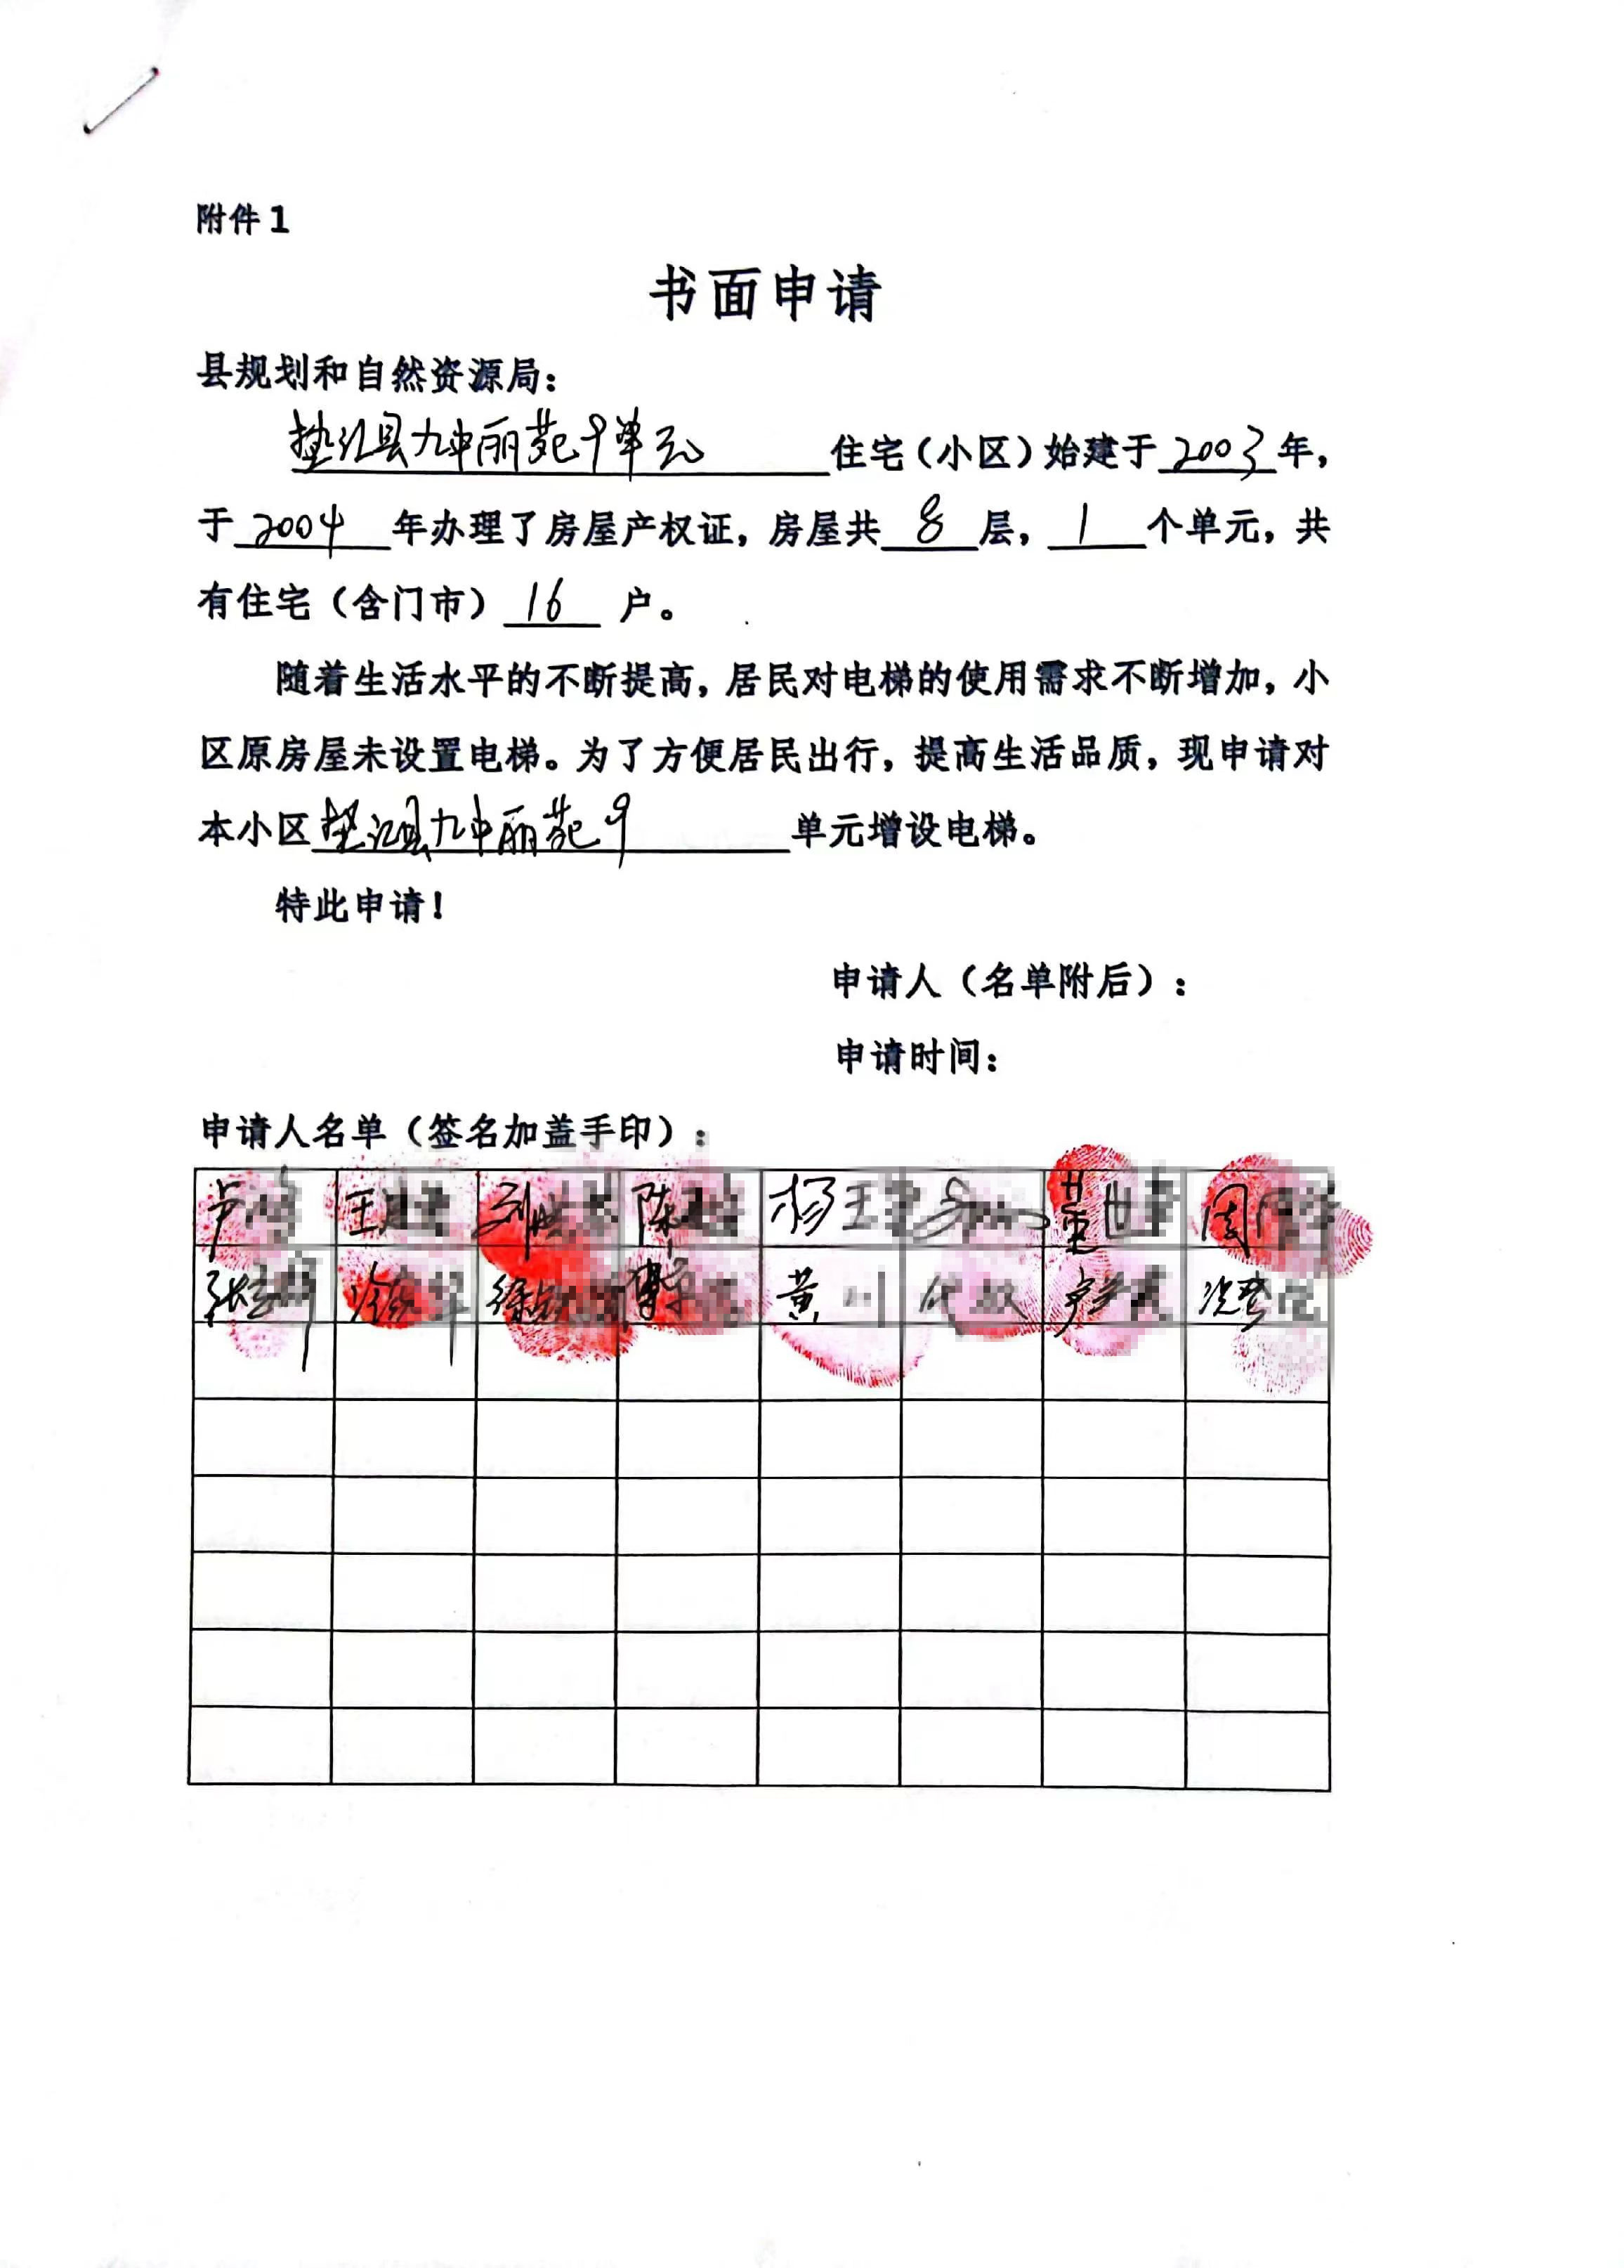 附件1
书面申请
县规划和自然资源局：
垫江县九中丽苑9单元住宅（小区）始建于2003年，
于2004年办理了房屋产权证，房屋共8层，1个单元，共
有住宅（含门市）16户。
随着生活水平的不断提高，居民对电梯的使用需求不断增加，小
区原房屋未设置电梯。为了方便居民出行，提高生活品质，现申请对
本小区垫江县九中丽苑9单元增设电梯。
特此申请！
申请人（名单附后）：
申请时间：
申请人名单（签名加盖手印）：
卢 王 刘 陈 杨 董 周
张 徐 黄